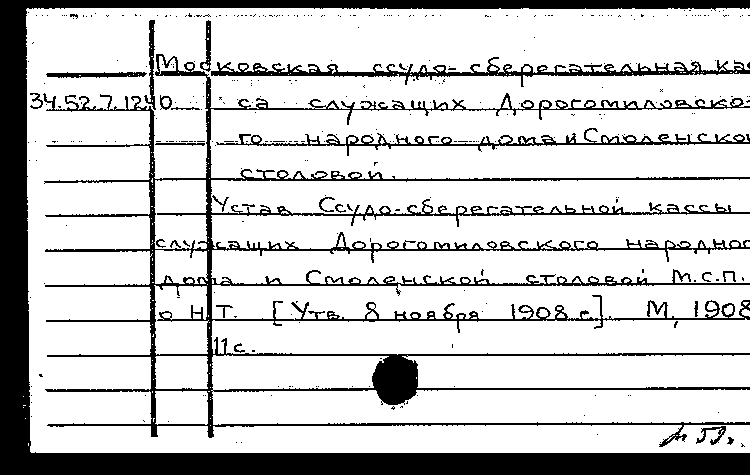 Московская ссудо-сберегательная кас
34.52.7.1240 са служащих Дорогомиловско-
го народного дома и Смоленской
столовой.
Устав Ссудо-сберегательной кассы
служащих Дорогомиловского народног
дома и Смоленской столовой М.С.П.
о Н.Т. [Утв. 8 ноября 1908 г.]. М, 1908
11 с.